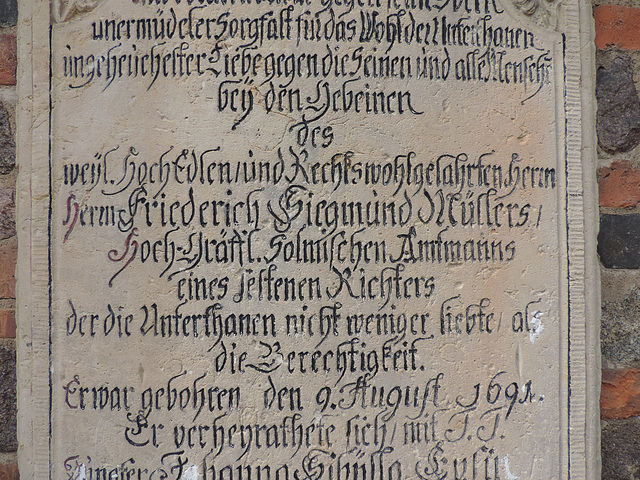 unermüdeter Sorgfalt für das Wohl der Unterthanen
ungeheuchelter Liebe gegen die Seinen und alle Mensche
bey den Gebeinen
des
weyl. HochEdlen/und Rechtswohlgelahrten Herrn
Herrn Friederich Siegmund Müllers/
Hoch-Gräffl. Solmischen Amtmanns
eines seltenen Richters
der die Unterthanen nicht weniger liebte/ als
die Gerechtigkeit.
Er war gebohren den 9. August 1691.
Er verheyrathete sich/ mit T. T.
Jungfer Johanna Sibylla